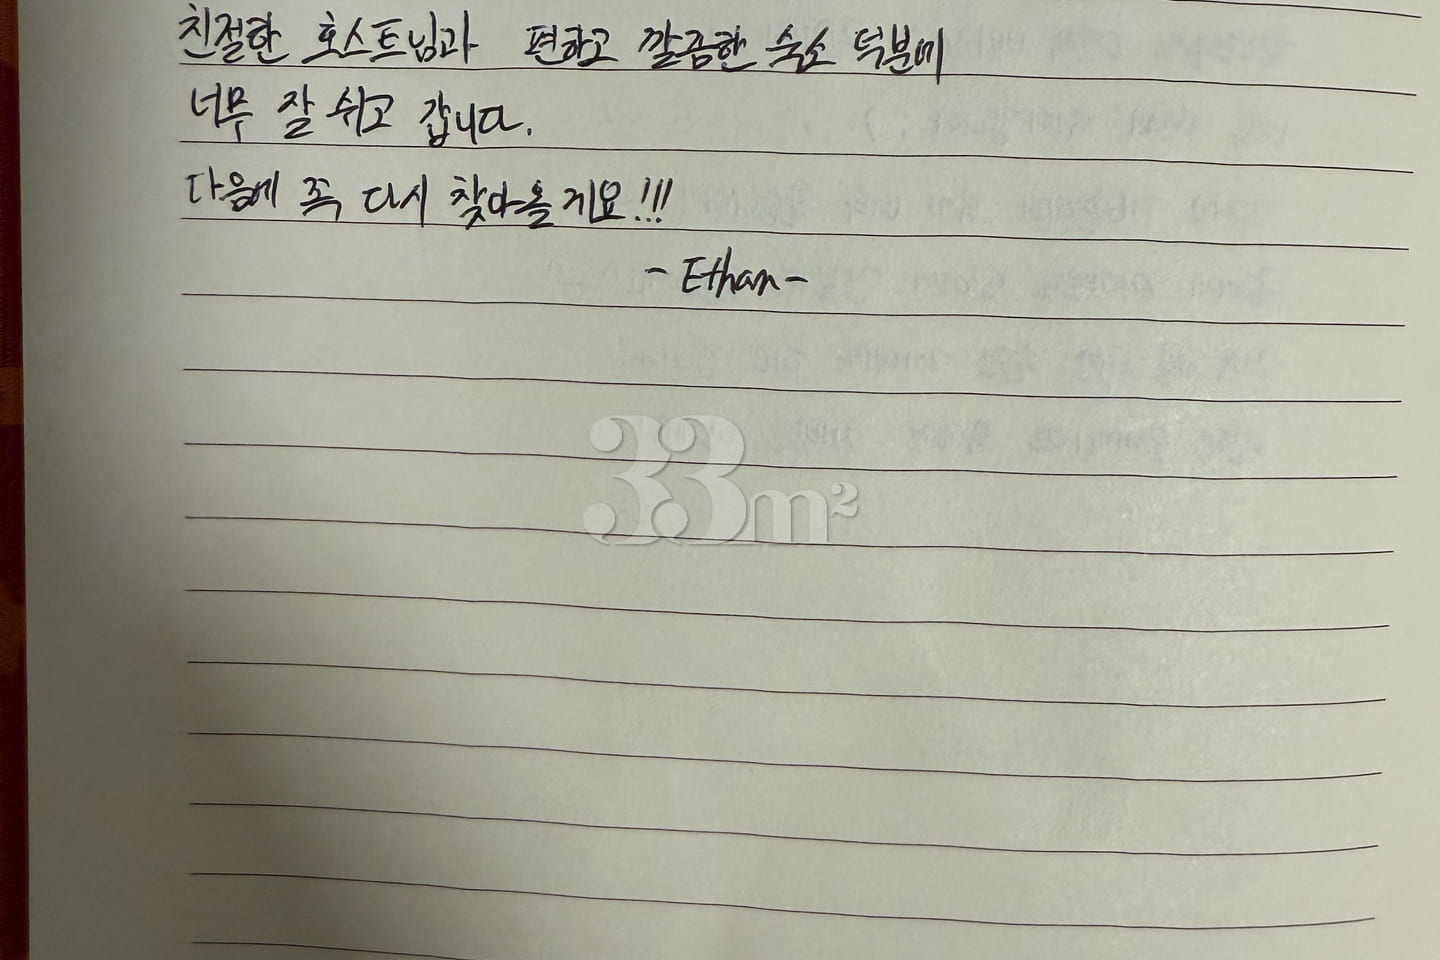 친절한 호스트님과 편하고 깔끔한 숙소 덕분에
너무 잘 쉬고 갑니다.
다음에 꼭 다시 찾아올게요!!!
- Ethan -
33m²